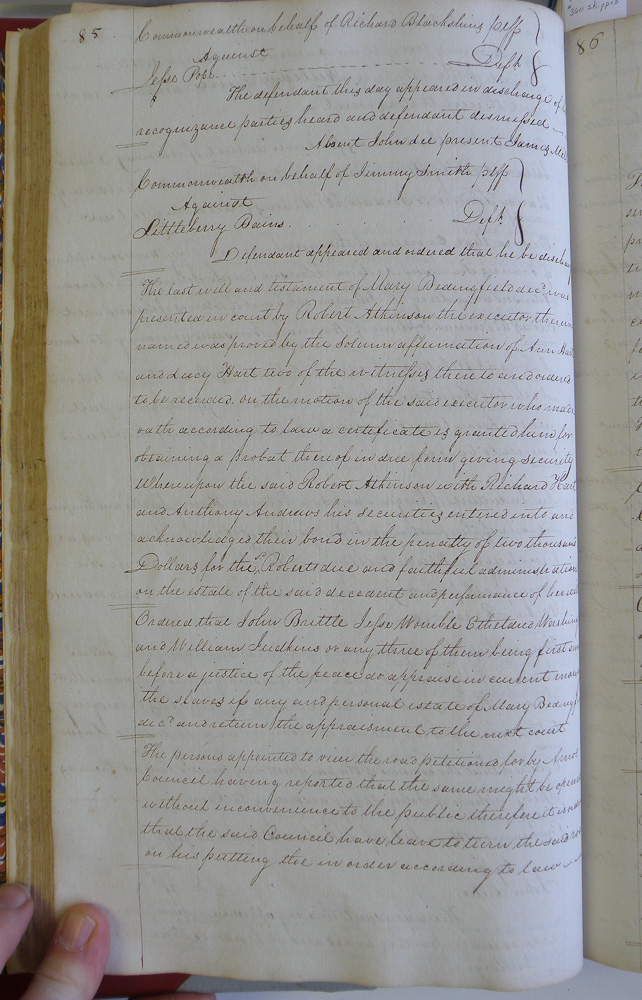 85
Commonwealth on behalf of Richard Blackshins plff
Against
Jesse Pope Deft
The defendant this day appeared in discharge of
recognizance parties heard and defendant desmissed
Absent John dee present James
Commonwealth on behalf of Jimmy Smith plff
Against
Littleberry Bains Deft
Defendant appeared and ordered that he be
The last will and testament of Mary Bedingfield decd was
presented in court by Robert Atkinson the executor therein
named was proved by the solemn affirmation of Ann Hart
and Lucy Hart two of the witnesses thereto and ordered
to be recorded. on the motion of the said executor who made
oath according to law a certificate is granted him for
obtaining a Probat thereof in due form giving security
Whereupon the said Robert Atkinson with Richard Hart
and Anthony Andrews his securities entered into and
acknowledged their bond in the penalty of two thousand
Dollars for the sd Roberts due and faithful administration
on the estate of the said decedent and performance of her will
Ordered that John Brittle Jesse Womble Etheldred
and William Judkins or any three of them being first
before a justice of the peace do appraise in current
the slaves if any and personal estate of Mary
decd and return the appraisment to the next court
The persons appointed to view the road petitioned for by
Council having reported that the same might be
without inconvenience to the public therefore it is
that the said Council have leave to turn the said
on his putting the in order according to law
86